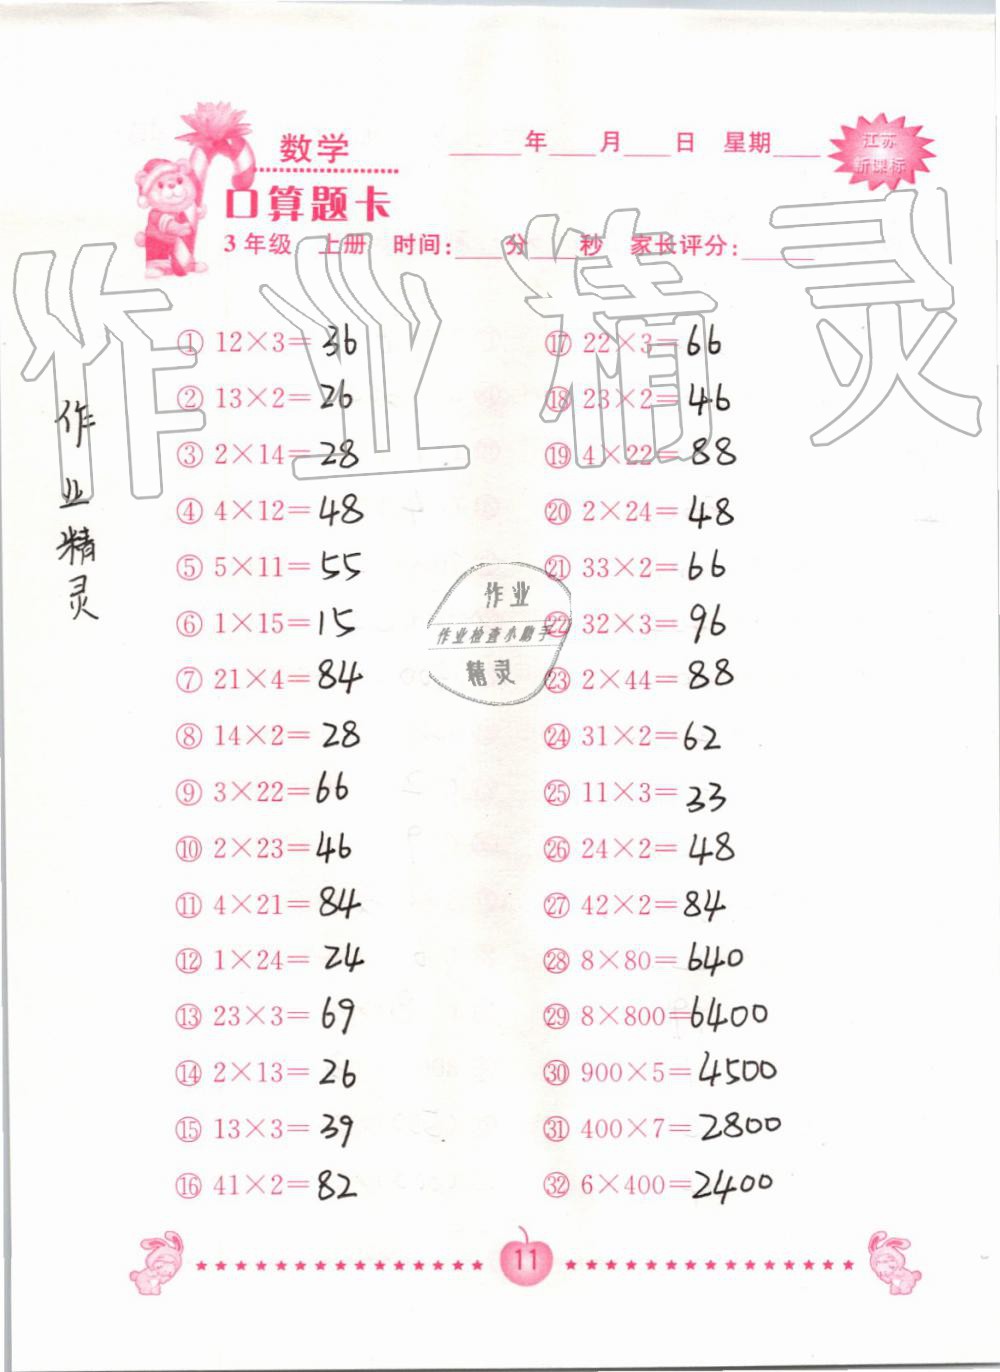 数学
____年____月____日 星期____
江苏
新课标
口算题卡
3年级 上册 时间：____分____秒 家长评分：____
作业精灵
作业精灵
① 12×3=36
② 13×2=26
③ 2×14=28
④ 4×12=48
⑤ 5×11=55
⑥ 1×15=15
⑦ 21×4=84
⑧ 14×2=28
⑨ 3×22=66
⑩ 2×23=46
⑪ 4×21=84
⑫ 1×24=24
⑬ 23×3=69
⑭ 2×13=26
⑮ 13×3=39
⑯ 41×2=82
作业
作业检查小助手
精灵
⑰ 22×3=66
⑱ 23×2=46
⑲ 4×22=88
⑳ 2×24=48
㉑ 33×2=66
㉒ 32×3=96
㉓ 2×44=88
㉔ 31×2=62
㉕ 11×3=33
㉖ 24×2=48
㉗ 42×2=84
㉘ 8×80=640
㉙ 8×800=6400
㉚ 900×5=4500
㉛ 400×7=2800
㉜ 6×400=2400
11